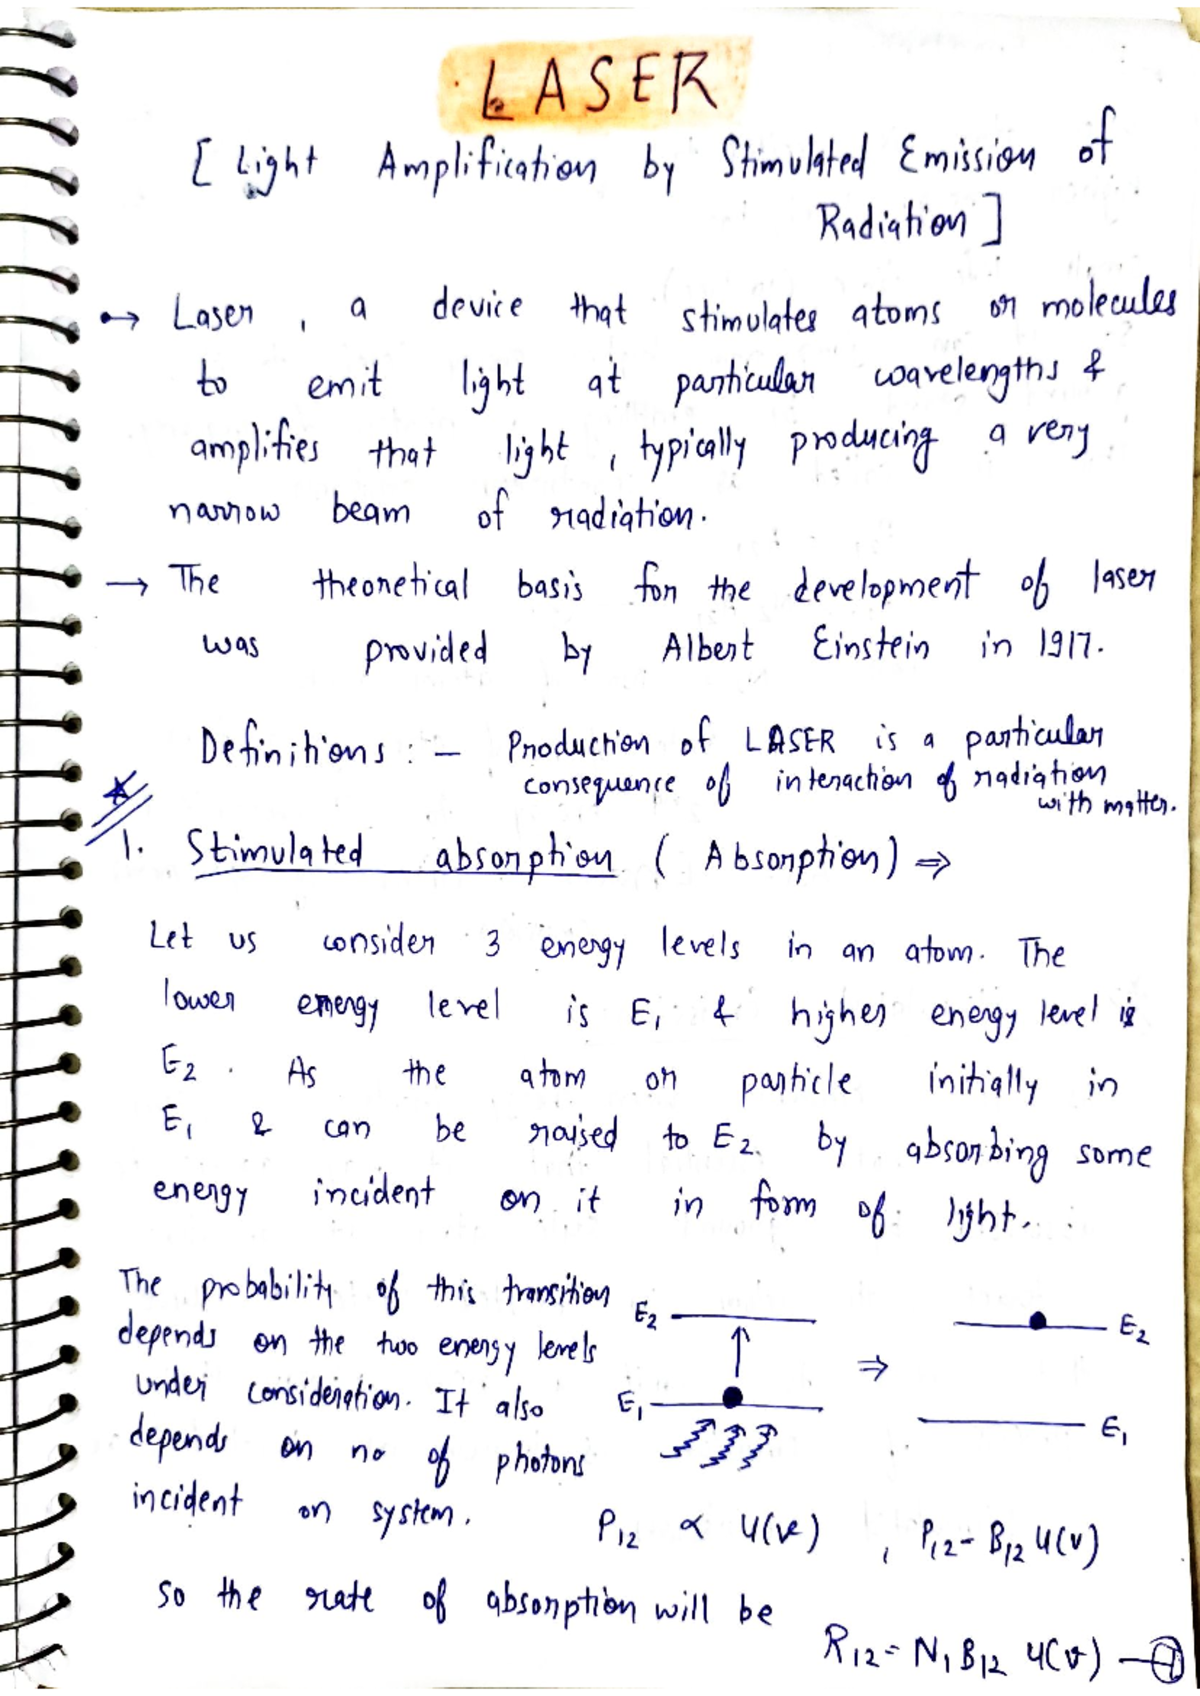 LASER
[ Light Amplification by Stimulated Emission of
Radiation ]
→ Laser , a device that stimulates atoms or molecules
to emit light at particular wavelengths &
amplifies that light , typically producing a very
narrow beam of radiation.
→ The theoretical basis for the development of laser
was provided by Albert Einstein in 1917.
Definitions : – Production of LASER is a particular
consequence of interaction of radiation
with matter.
1. Stimulated absorption ( Absorption ) ⇒
Let us consider 3 energy levels in an atom. The
lower energy level is E₁ & higher energy level is
E₂ . As the atom or particle initially in
E₁ & can be raised to E₂ by absorbing some
energy incident on it in form of light.
The probability of this transition
depends on the two energy levels
under consideration. It also
depends on no of photons
incident on system.
E₂
E₁
⇒
E₂
E₁
P₁₂ ∝ u(ν) , P₁₂ = B₁₂ u(ν)
So the rate of absorption will be
R₁₂ = N₁ B₁₂ u(ν) — ①